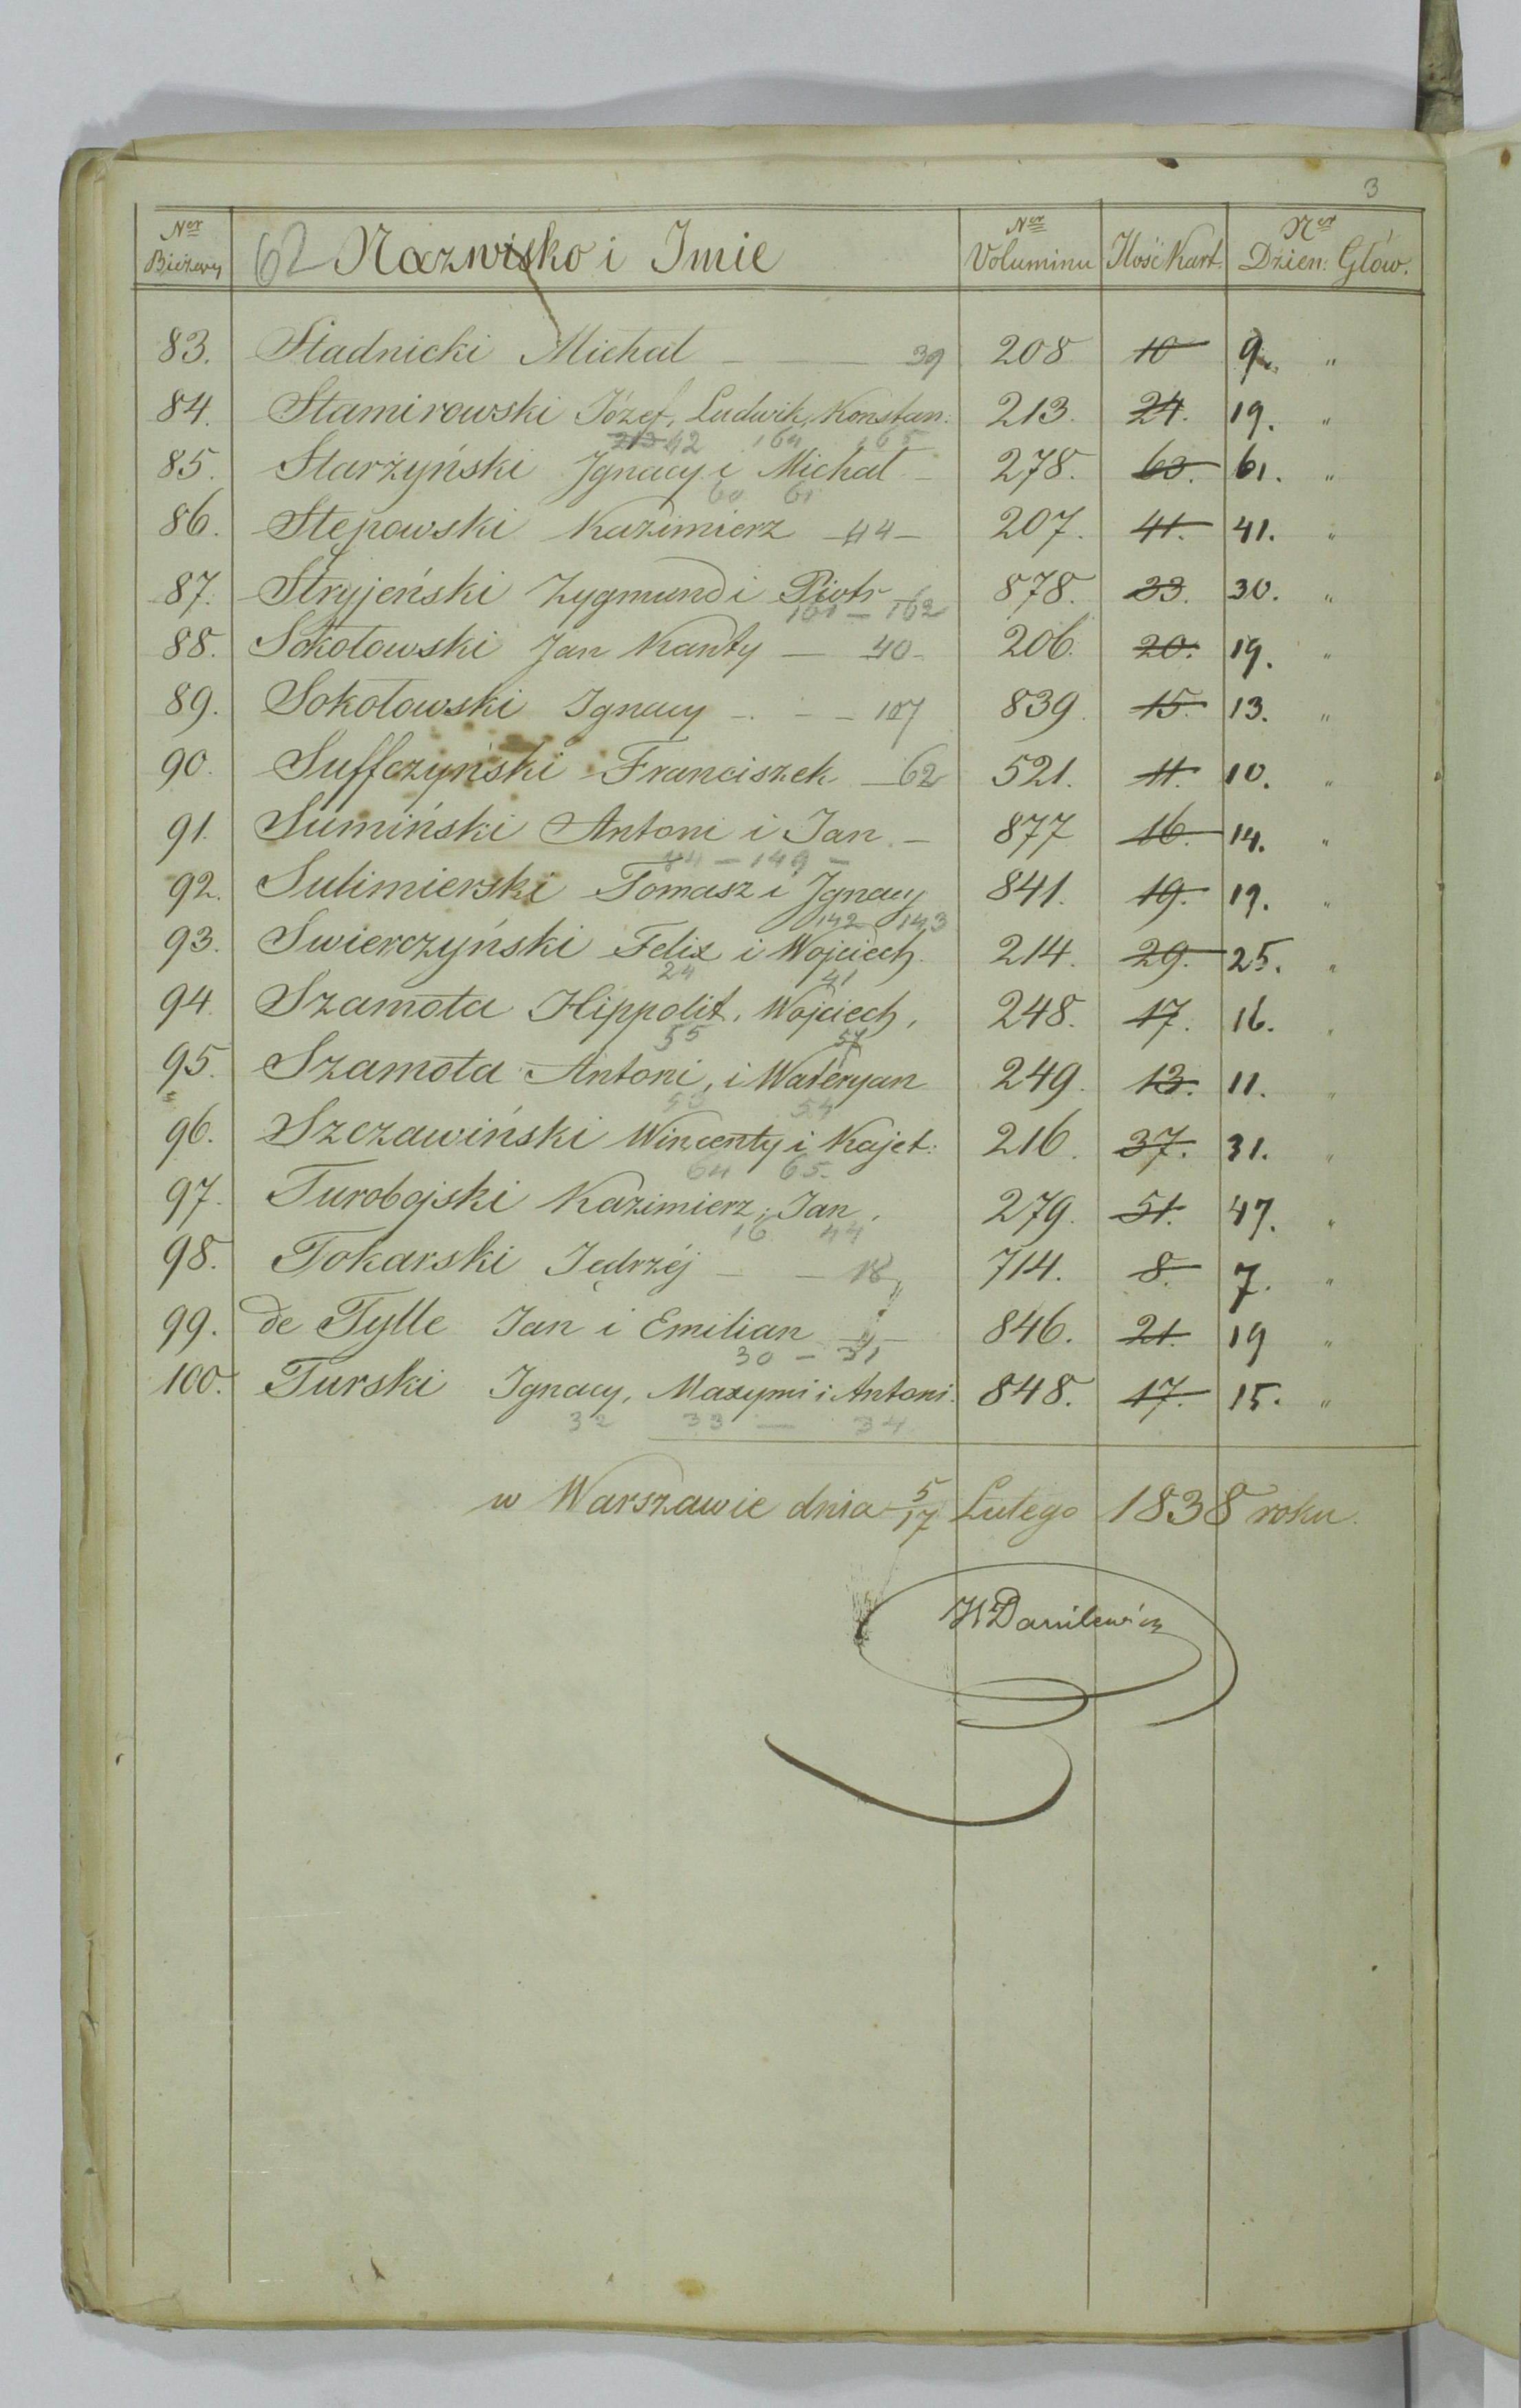 3
Ner Bieżący 62 Nazwisko i Imie Ner Voluminu Ilość Kart. Ner Dzien: Głów.
83. Stadnicki Michał — — 39 208 10 9. "
84. Stamirowski Józef, Ludwik, Konstan: 213. 24. 19. "
213 42 164 165
85. Starżyński Ignacy i Michał — 278. 63. 61. "
60 61
86. Stepowski Kazimierz — 44 — 207. 41. 41. "
87. Stryjeński Zygmund i Piotr 878. 33. 30. "
161 — 162
88. Sokołowski Jan Kanty — 40 — 206. 20. 19. "
89. Sokołowski Ignacy — — — 107 839. 15. 13. "
90. Suffczyński Franciszek — 62 521. 11. 10. "
91. Sumiński Antoni i Jan. — 877 16. 14. "
— 149 —
92. Sulimierski Tomasz i Ignacy 841. 19. 19. "
142 143
93. Swierczyński Felix i Wojciech. 214. 29. 25. "
24 41
94. Szamota Hippolit, Wojciech, 248. 17. 16. "
55 57
95. Szamota Antoni, i Waleryan 249. 13. 11. "
53 54
96. Szczawiński Wincenty i Kajet: 216. 37. 31. "
64 65.
97. Turobojski Kazimierz, Jan. 279. 51. 47. "
16 44
98. Tokarski Jędrzéj — — 18 714. 8. 7. "
99. de Tylle Jan i Emilian 846. 21. 19 "
30 — 31
100. Turski Ignacy, Maxymi i Antoni. 848. 17. 15. "
32 33 — 34
w Warszawie dnia 5/17 Lutego 1838 roku.
Danilewicz